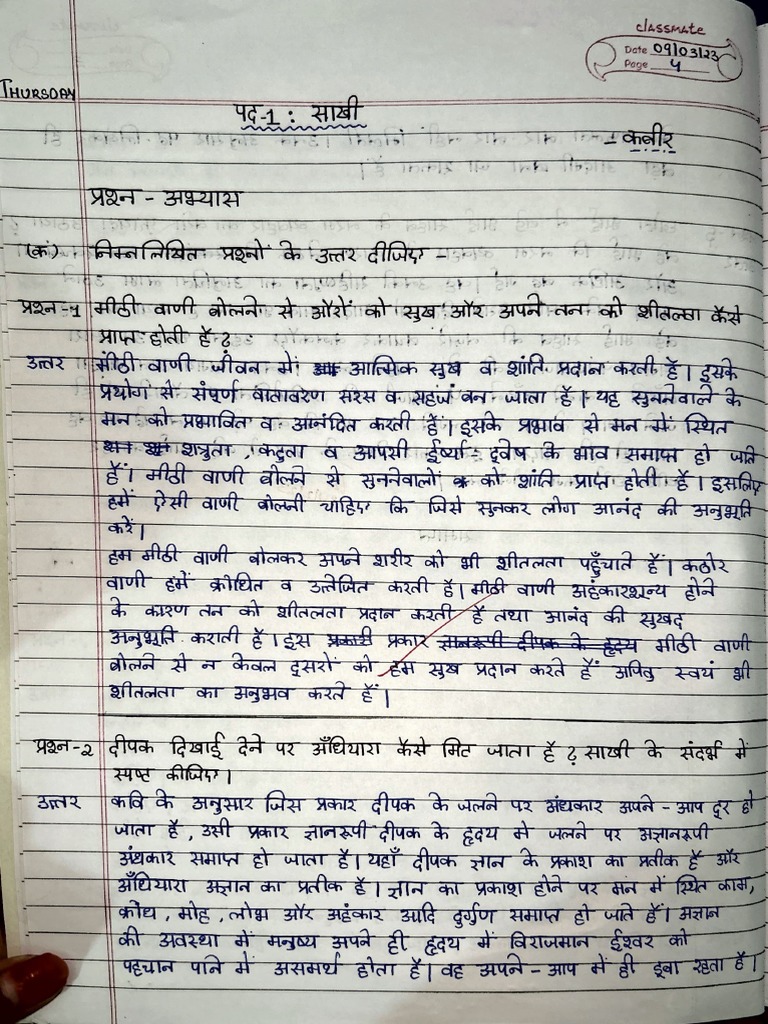 classmate
Date 09/03/23
Page 4
THURSDAY
पद-1 : साखी
- कबीर
प्रश्न - अभ्यास
(क) निम्नलिखित प्रश्नों के उत्तर दीजिए -
प्रश्न-1 मीठी वाणी बोलने से औरों को सुख और अपने तन को शीतलता कैसे
प्राप्त होती है?
उत्तर मीठी वाणी जीवन में आत्मिक सुख व शांति प्रदान करती है। इसके
प्रयोग से संपूर्ण वातावरण सरस व सहज बन जाता है। यह सुननेवाले के
मन को प्रभावित व आनंदित करती है। इसके प्रभाव से मन में स्थित
शत्रुता, कटुता व आपसी ईर्ष्या-द्वेष के भाव समाप्त हो जाते
हैं। मीठी वाणी बोलने से सुननेवालों को शांति प्राप्त होती है। इसलिए
हमें ऐसी वाणी बोलनी चाहिए कि जिसे सुनकर लोग आनंद की अनुभूति
करें।
हम मीठी वाणी बोलकर अपने शरीर को भी शीतलता पहुँचाते हैं। कठोर
वाणी हमें क्रोधित व उत्तेजित करती है। मीठी वाणी अहंकारशून्य होने
के कारण तन को शीतलता प्रदान करती है तथा आनंद की सुखद
अनुभूति कराती है। इस प्रकार मीठी वाणी
बोलने से न केवल दूसरों को हम सुख प्रदान करते हैं अपितु स्वयं भी
शीतलता का अनुभव करते हैं।
प्रश्न-2 दीपक दिखाई देने पर अँधियारा कैसे मिट जाता है? साखी के संदर्भ में
स्पष्ट कीजिए।
उत्तर कवि के अनुसार जिस प्रकार दीपक के जलने पर अंधकार अपने-आप दूर हो
जाता है, उसी प्रकार ज्ञानरूपी दीपक के हृदय में जलने पर अज्ञानरूपी
अंधकार समाप्त हो जाता है। यहाँ दीपक ज्ञान के प्रकाश का प्रतीक है और
अँधियारा अज्ञान का प्रतीक है। ज्ञान का प्रकाश होने पर मन में स्थित काम,
क्रोध, मोह, लोभ और अहंकार आदि दुर्गुण समाप्त हो जाते हैं। अज्ञान
की अवस्था में मनुष्य अपने ही हृदय में विराजमान ईश्वर को
पहचान पाने में असमर्थ होता है। वह अपने-आप में ही डूबा रहता है।